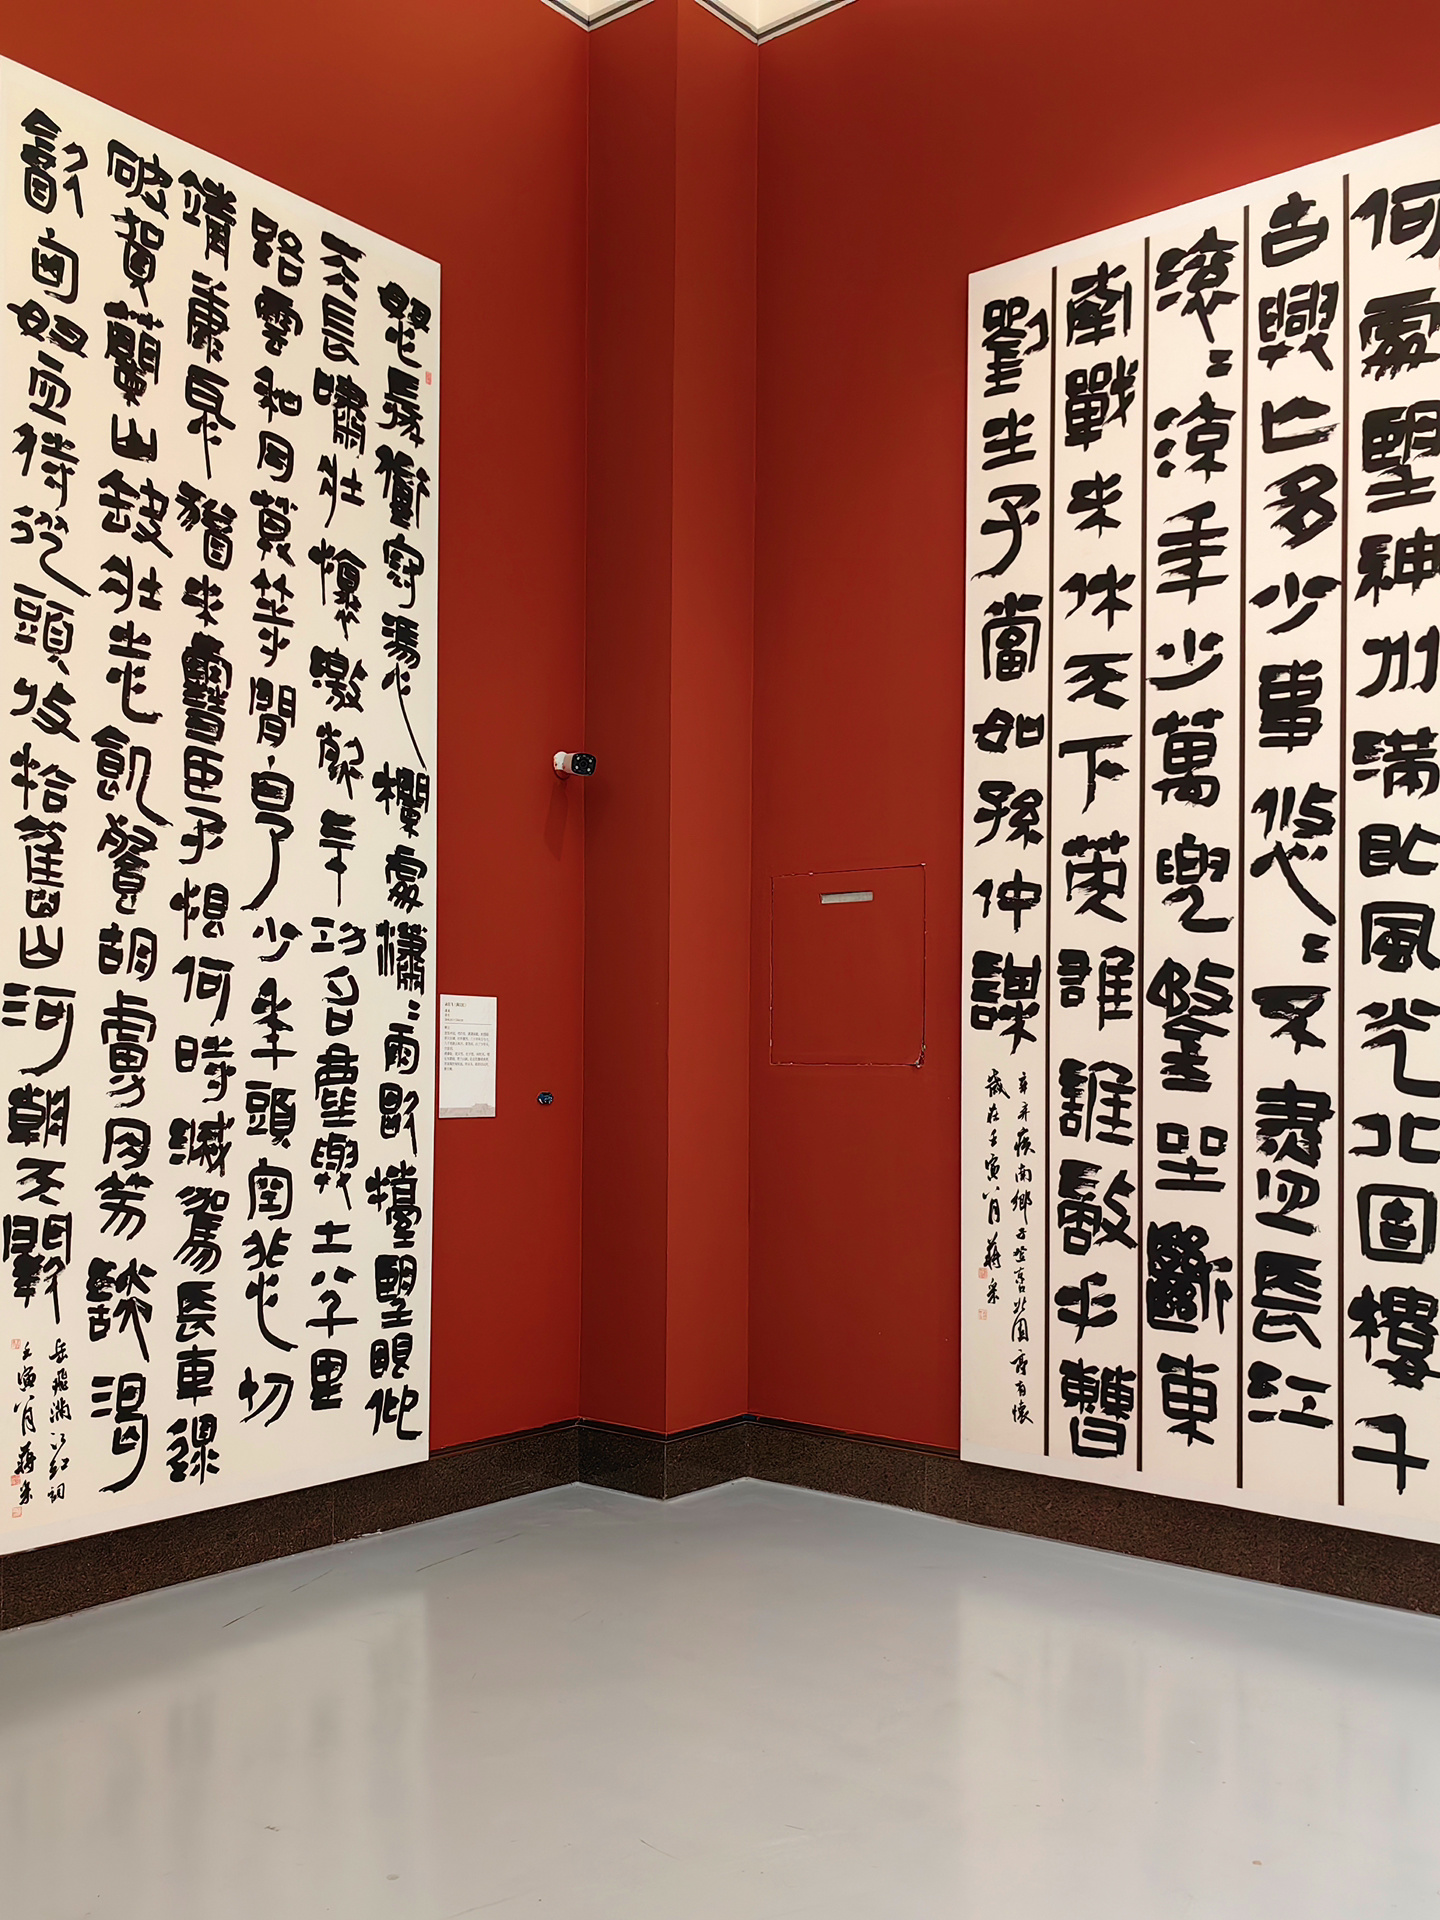 怒髮衝冠馮欄處瀟〻雨歇擡望眼仰
天長嘯壯懷激烈三十功名塵與土八千里
路雲和月莫等閒白了少年頭空悲切
靖康恥猶未雪臣子恨何時滅駕長車
破賀蘭山缺壯志飢餐胡虜肉笑談渴
飲匈奴血待從頭收拾舊山河朝天闕
岳飛滿江紅詞
壬寅八月蔣采
何處望神州滿眼風光北固樓千
古興亡多少事悠〻不盡長江
滾〻流年少萬兜鍪坐斷東
南戰未休天下英雄誰敵手曹
劉生子當如孫仲謀
辛弃疾南鄉子登京口北固亭有懷
歲在壬寅八月蔣采